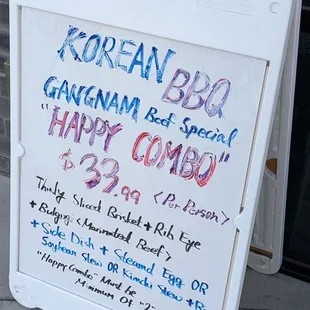 KOREAN BBQ
GANGNAM Beef Special
"HAPPY COMBO"
$33.99 <Per Person>
Thinly Sliced Brisket + Rib Eye
+ Bulgogi <Marinated Beef>
+ Side Dish + Steamed Egg OR
Soybean Stew OR Kimchi Stew + R
"Happy Combo" Must be "2"
Minimum Of